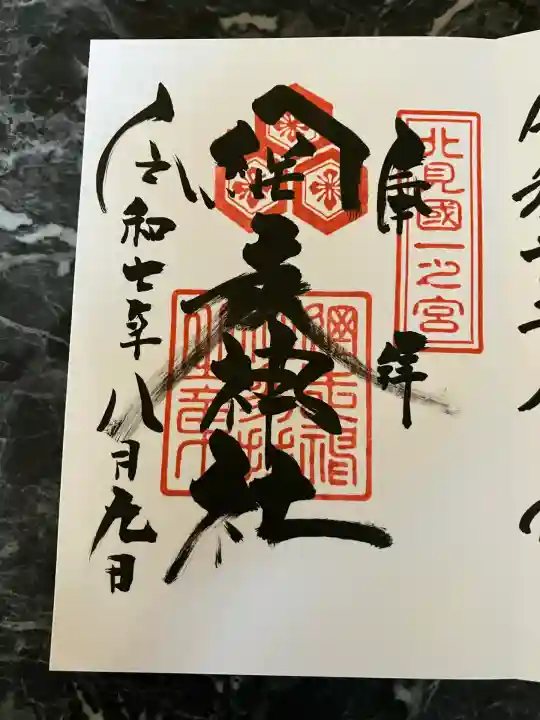 北見國一之宮
奉拝
網走神社
令和七年八月九日